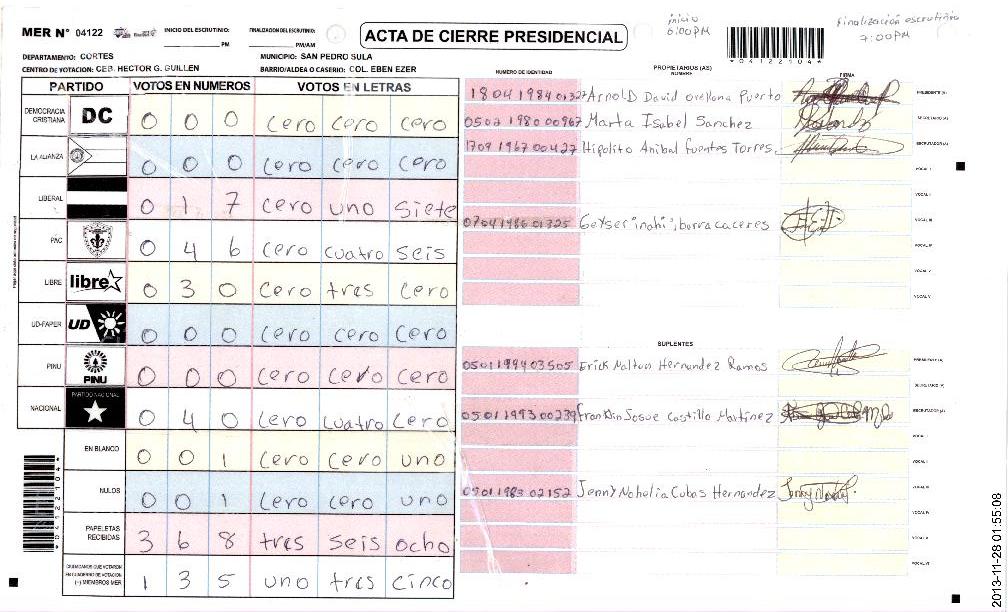 MER N° 04122
INICIO DEL ESCRUTINIO: PM
FINALIZACION DEL ESCRUTINIO: PM/AM
ACTA DE CIERRE PRESIDENCIAL
inicio
6:00PM
*04122104*
Finalización escrutinio
7:00PM
DEPARTAMENTO: CORTES
MUNICIPIO: SAN PEDRO SULA
CENTRO DE VOTACION: CEB. HECTOR G. GUILLEN
BARRIO/ALDEA O CASERIO: COL. EBEN EZER
NUMERO DE IDENTIDAD
PROPIETARIOS (AS)
NOMBRE
FIRMA
PARTIDO VOTOS EN NUMEROS VOTOS EN LETRAS
DEMOCRACIA CRISTIANA DC 0 0 0 cero cero cero
LA ALIANZA 0 0 0 cero cero cero
LIBERAL 0 1 7 cero uno siete
PAC 0 4 6 cero cuatro seis
LIBRE libre 0 3 0 cero tres cero
UD-FAPER UD 0 0 0 cero cero cero
PINU PINU 0 0 0 cero cero cero
NACIONAL PARTIDO NACIONAL 0 4 0 cero cuatro cero
EN BLANCO 0 0 1 cero cero uno
NULOS 0 0 1 cero cero uno
PAPELETAS RECIBIDAS 3 6 8 tres seis ocho
CIUDADANOS QUE VOTARON EN CUADERNO DE VOTACION (+) MIEMBROS MER 1 3 5 uno tres cinco
1804 1984 01327 Arnold David Orellana Puerto PRESIDENTE (A)
0502 1980 00967 Marta Isabel Sanchez SECRETARIO (A)
1709 1967 00427 Hipolito Anibal Fuentes Torres. ESCRUTADOR (A)
VOCAL I
VOCAL II
0704 1986 01325 VOCAL III
VOCAL IV
VOCAL V
VOCAL VI
SUPLENTES
0501 1994 03505 Erick Hernandez Ramos PRESIDENTE (A)
SECRETARIO (A)
0501 1993 00239 Franklin Josue Castillo Martinez ESCRUTADOR (A)
VOCAL I
VOCAL II
0501 1983 02152 Jenny Nohelia Cubas Hernandez VOCAL III
VOCAL IV
VOCAL V
VOCAL VI
*04122104*
2013-11-28 01:55:08